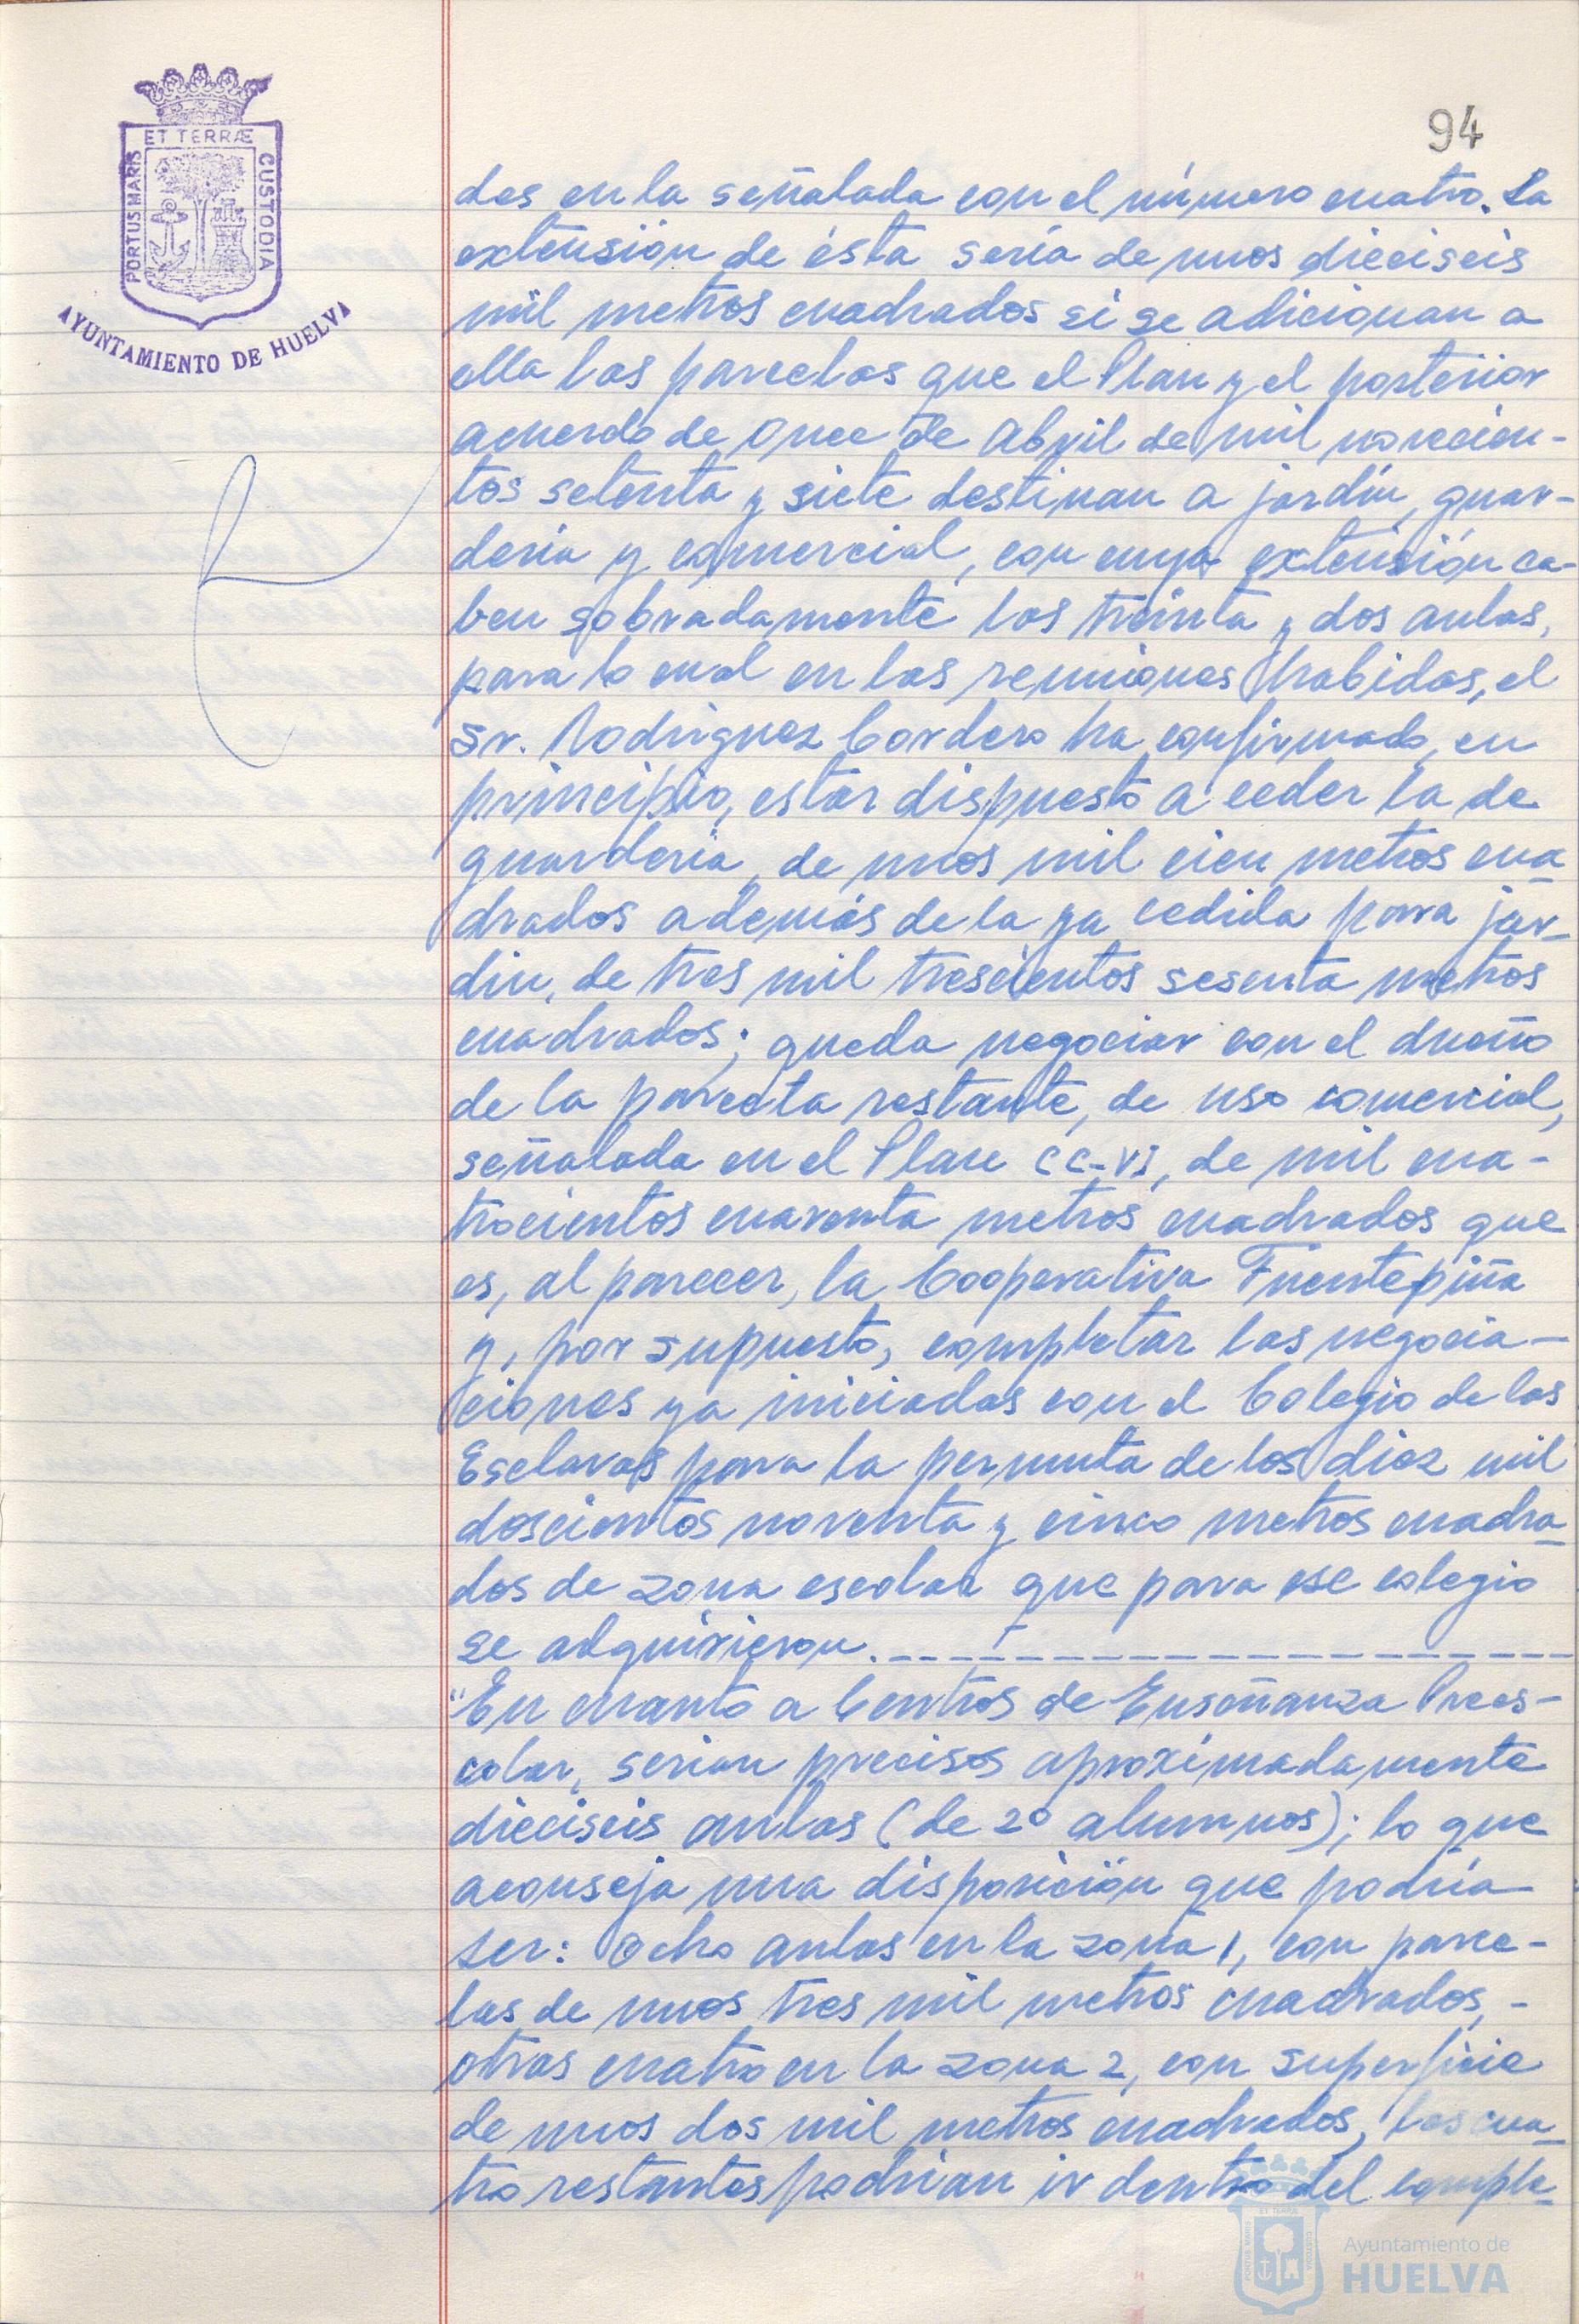 94
ET TERRÆ
PORTUS MARIS
CUSTODIA
AYUNTAMIENTO DE HUELVA
dos en la señalada con el número cuatro. La
extensión de ésta sería de unos dieciseis
mil metros cuadrados si se adicionan a
ella las parcelas que el Plan y el posterior
acuerdo de Once de Abril de mil novecien-
tos setenta y siete destinan a jardín, guar-
dería y comercial, con cuya extensión ca-
ben sobradamente las treinta y dos aulas,
para lo cual en las reuniones habidas, el
Sr. Rodríguez Cordero ha confirmado, en
principio, estar dispuesto a ceder la de
guardería, de unos mil cien metros cua-
drados además de la ya cedida para jar-
din, de tres mil trescientos sesenta metros
cuadrados; queda negociar con el dueño
de la parcela restante, de uso comercial,
señalada en el Plan CC-VI, de mil cua-
trocientos cuarenta metros cuadrados que
es, al parecer, la Cooperativa Fuentepiña
y, por supuesto, completar las negocia-
ciones ya iniciadas con el Colegio de las
Esclavas para la permuta de los diez mil
doscientos noventa y cinco metros cuadra-
dos de zona escolar que para ese colegio
se adquirieron.--------------------
"En cuanto a Centros de Enseñanza Prees-
colar, serian precisos aproximadamente
dieciseis aulas (de 20 alumnos); lo que
aconseja una disposición que podría
ser: Ocho aulas en la zona 1, con parce-
las de unos tres mil metros cuadrados, -
otras cuatro en la zona 2, con superficie
de unos dos mil metros cuadrados, las cua-
tro restantes podrian ir dentro del comple-
Ayuntamiento de
HUELVA